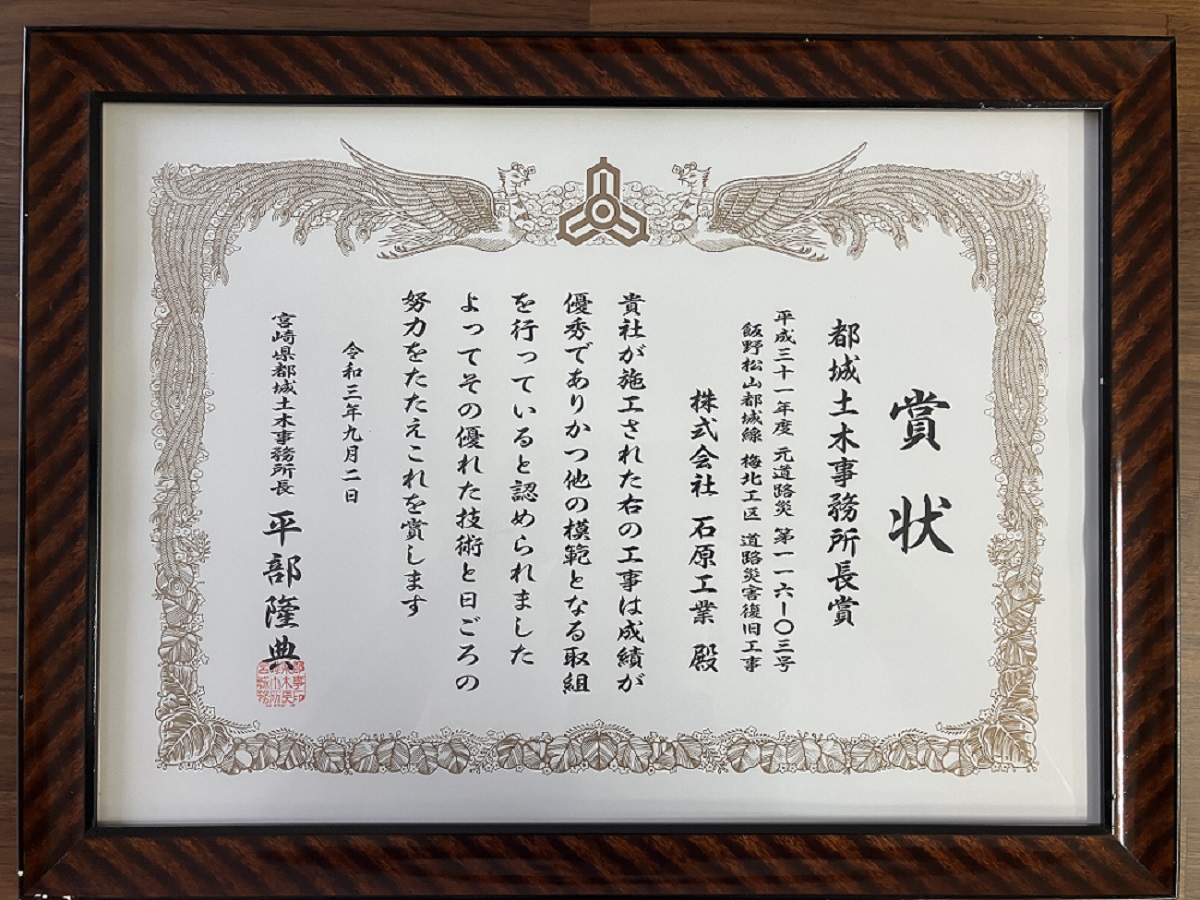 賞状
都城土木事務所長賞
平成三十一年度 元道路災 第一一六ー〇三号
飯野松山都城線 梅北工区 道路災害復旧工事
株式会社 石原工業 殿
貴社が施工された右の工事は成績が
優秀でありかつ他の模範となる取組
を行っていると認められました
よってその優れた技術と日ごろの
努力をたたえこれを賞します
令和三年九月二日
宮崎県都城土木事務所長 平部隆典